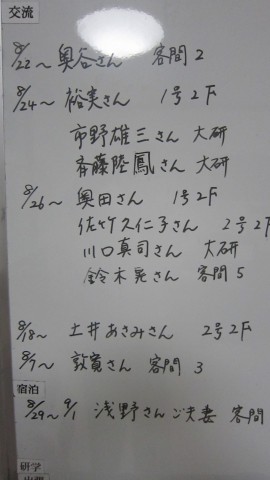 交流
8/22〜 奥谷さん 客間2
8/24〜 裕実さん 1号2F
市野雄三さん 大研
斉藤陸鳳さん 大研
8/26〜 奥田さん 1号2F
佐竹久仁子さん 2号2F
川口真司さん 大研
鈴木晃さん 客間5
8/18〜 土井あさみさん 2号2F
8/7〜 敦賀さん 客間3
宿泊
8/29〜9/1 浅野さんご夫妻 客間
研学